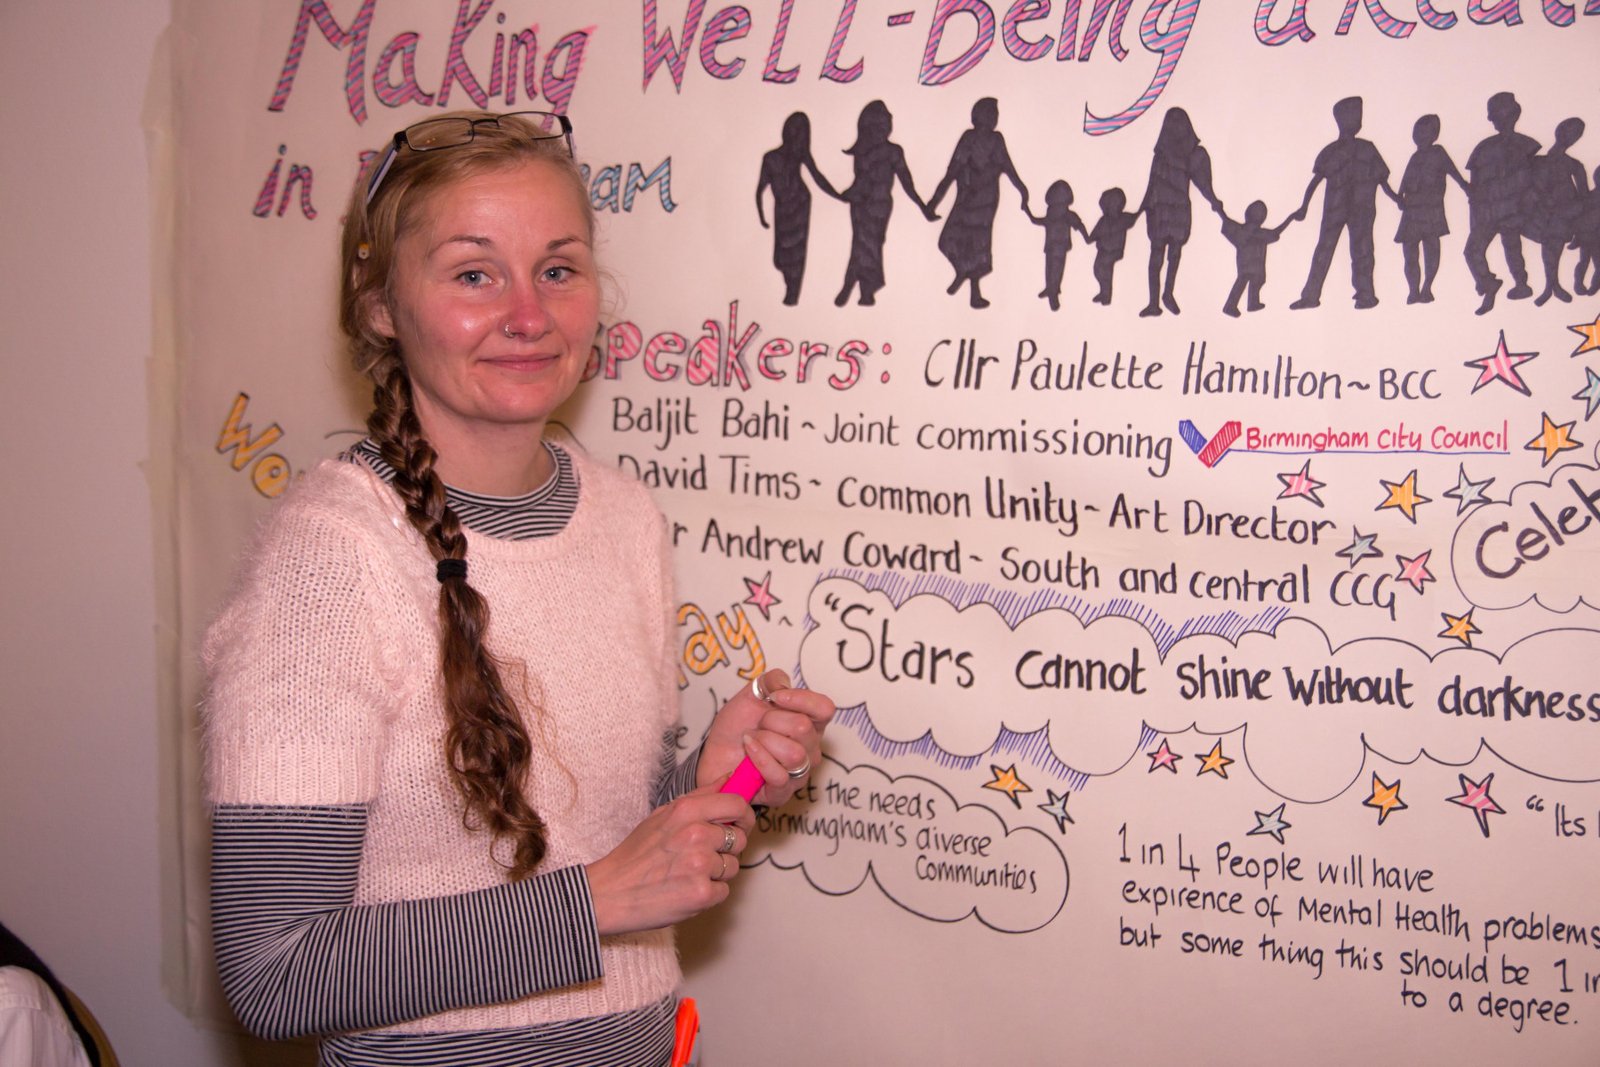 Making Well-Being a
in
Speakers: Cllr Paulette Hamilton ~ BCC
Baljit Bahi ~ Joint commissioning Birmingham City Council
David Tims ~ Common Unity ~ Art Director
Andrew Coward ~ South and central CCG
"Stars cannot shine without darkness
the needs
Birmingham's diverse
Communities
"Its
1 in 4 People will have
expirence of Mental Health problems
but some thing this should be 1 in
to a degree.